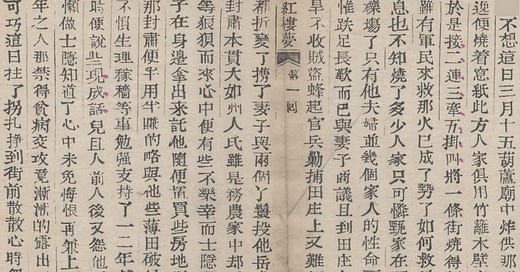 不想這日三月十五葫蘆廟中炸供那
逸便燒着窓紙此方人家俱用竹籬木壁
於是接二連三牽五掛四將一條街燒得
雖有軍民來救那火已成了勢了如何救
息也不知燒了多少人家只可憐甄家在
礫塲了只有他夫婦並幾個家人的性命
惟跌足長歎而已與妻子商議且到田庄
旱不收賊盜蜂起官兵勦捕田庄上又難
紅樓夢 第一回
都折變了携了妻子與兩個丫鬟投他岳
封肅本貫大如州人氏雖是務農家中却
等狼狽而來心中便有些不樂幸而士隱
子在身邊拿出來託他隨便置買些房地
那封肅便半用半賺的略與他些薄田破
不慣生理稼穡等事勉强支持了一二年
時便說些現成話兒且人前人後又怨他
懶做士隱知道了心中未免悔恨再兼上
年之人那禁得貧病交攻竟漸漸的露出
可巧這日拄了拐扎挣到街前散散心時